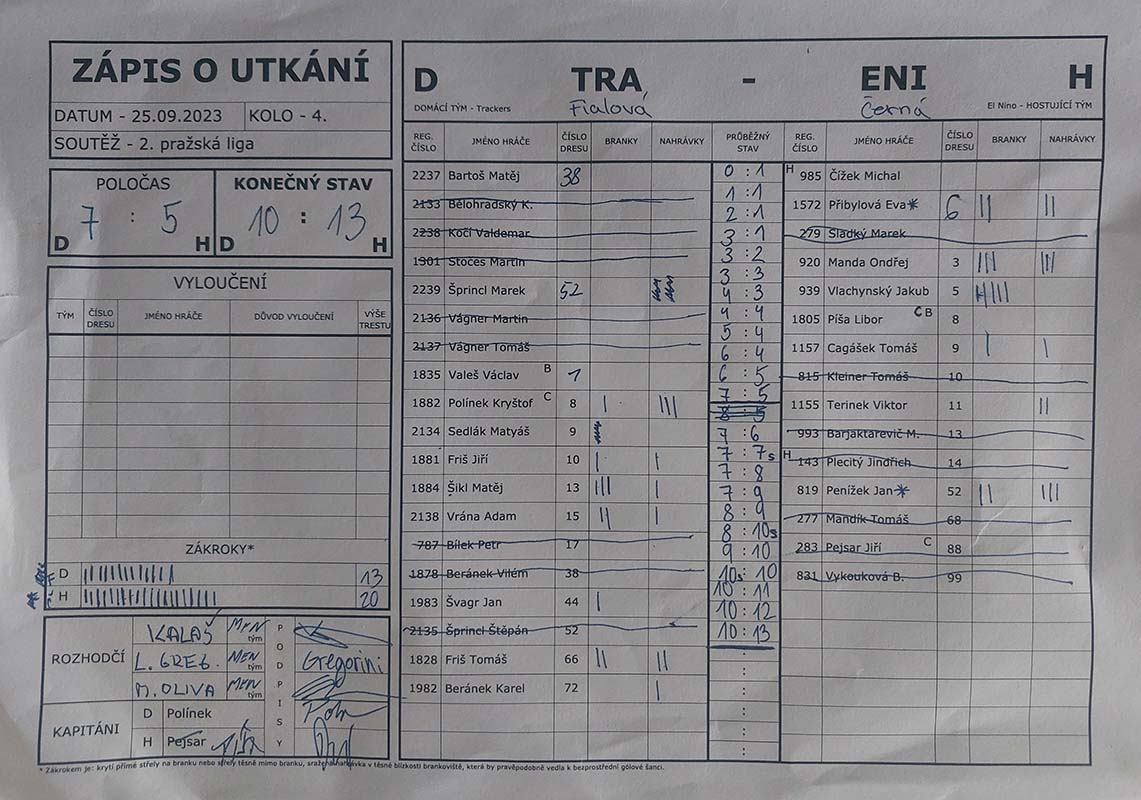 ZÁPIS O UTKÁNÍ
DATUM - 25.09.2023 KOLO - 4.
SOUTĚŽ - 2. pražská liga
POLOČAS KONEČNÝ STAV
7 : 5 10 : 13
D H D H
VYLOUČENÍ
TÝM ČÍSLO DRESU JMÉNO HRÁČE DŮVOD VYLOUČENÍ VÝŠE TRESTU
ZÁKROKY*
D 13
H 20
ROZHODČÍ
KALAŠ MEN tým
L. GREG. MEN tým Gregorini
M. OLIVA MEN tým
PODPISY
KAPITÁNI
D Polínek
H Pejsar
D TRA - ENI H
DOMÁCÍ TÝM - Trackers Fialová Černá El Nino - HOSTUJÍCÍ TÝM
REG. ČÍSLO JMÉNO HRÁČE ČÍSLO DRESU BRANKY NAHRÁVKY PRŮBĚŽNÝ STAV REG. ČÍSLO JMÉNO HRÁČE ČÍSLO DRESU BRANKY NAHRÁVKY
2237 Bartoš Matěj 38
2133 Bělohradský K.
2238 Kočí Valdemar
1301 Stoces Martin
2239 Šprincl Marek 52
2136 Vágner Martin
2137 Vágner Tomáš
1835 Valeš Václav B 1
1882 Polínek Kryštof C 8 | |||
2134 Sedlák Matyáš 9
1881 Friš Jiří 10 | |
1884 Šikl Matěj 13 ||| |
2138 Vrána Adam 15 || |
787 Bílek Petr 17
1878 Beránek Vilém 38
1983 Švagr Jan 44 |
2135 Šprincl Štěpán 52
1828 Friš Tomáš 66 || ||
1982 Beránek Karel 72 |
0 : 1
1 : 1
2 : 1
3 : 1
3 : 2
3 : 3
4 : 3
4 : 4
5 : 4
6 : 4
6 : 5
7 : 5
8 : 5
7 : 6
7 : 7s
7 : 8
7 : 9
8 : 9
8 : 10s
9 : 10
10s : 10
10 : 11
10 : 12
10 : 13
H 985 Čížek Michal
1572 Přibylová Eva* 6 || ||
279 Sladký Marek
920 Manda Ondřej 3 ||| |||
939 Vlachynský Jakub 5
1805 Píša Libor C B 8
1157 Cagášek Tomáš 9 | |
815 Kleiner Tomáš 10
1155 Terinek Viktor 11 ||
993 Barjaktarevič M. 13
H 143 Plecitý Jindřich 14
819 Penížek Jan* 52 || |||
277 Mandík Tomáš 68
283 Pejsar Jiří C 88
831 Vykouková B. 99
* Zákrokem je: krytí přímé střely na branku nebo střely těsně mimo branku, sražená nahrávka v těsné blízkosti brankoviště, která by pravěpodobně vedla k bezprostřední gólové šanci.